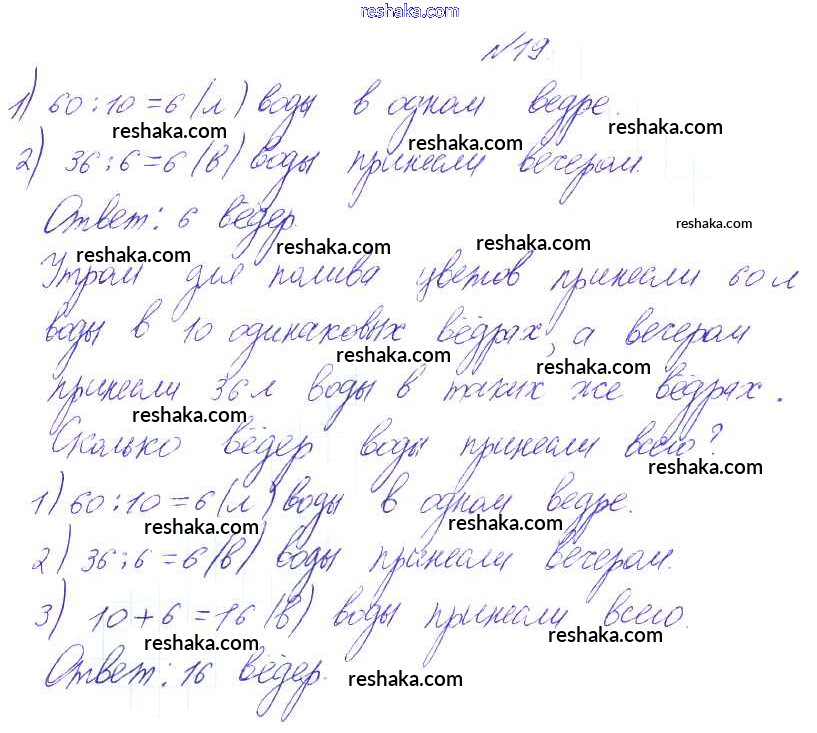 reshaka.com
№19
1) 60:10=6 (л) воды в одном ведре.
reshaka.com reshaka.com reshaka.com
2) 36:6=6 (в) воды принесли вечером.
Ответ: 6 вёдер.
reshaka.com
reshaka.com reshaka.com reshaka.com
Утром для полива цветов принесли 60 л
воды в 10 одинаковых вёдрах, а вечером
reshaka.com reshaka.com
принесли 36 л воды в таких же вёдрах.
reshaka.com
Сколько вёдер воды принесли всего?
reshaka.com
1) 60:10=6 (л) воды в одном ведре.
reshaka.com reshaka.com
2) 36:6=6 (в) воды принесли вечером.
3) 10+6=16 (в) воды принесли всего.
reshaka.com reshaka.com
Ответ: 16 вёдер.
reshaka.com